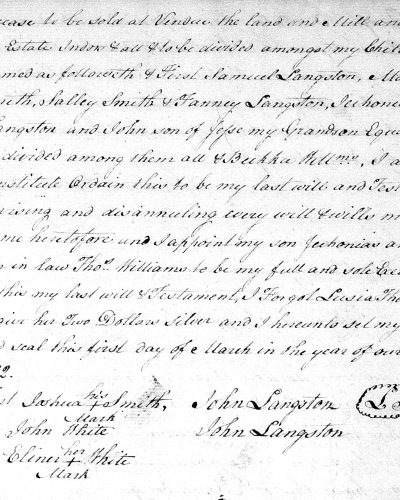 cease to be sold at Vendue the land and Mill and
Estate Indow & all & to be divided amongst my Chil
med as followeth & First Samuel Langston, Ma
ith, Salley Smith & Fanney Langston, Jechonia
angston and John son of Jesse my Grandson Equa
divided among them all & Bekka Willms, I a
nstitute Ordain this to be my last will and Test
vising and disannuling every will & wills m
me heretofore and I appoint my son Jechonias a
n in law Thos. Williams to be my full and sole Exec
this my last will & Testament, I Forgot Lusia Tho
give her Two Dollars Silver and I hereunto set my
d seal this first day of March in the year of our
2.
st Joshua his + Smith, John Langston
Mark
John White John Langston
Eliner her + White
Mark